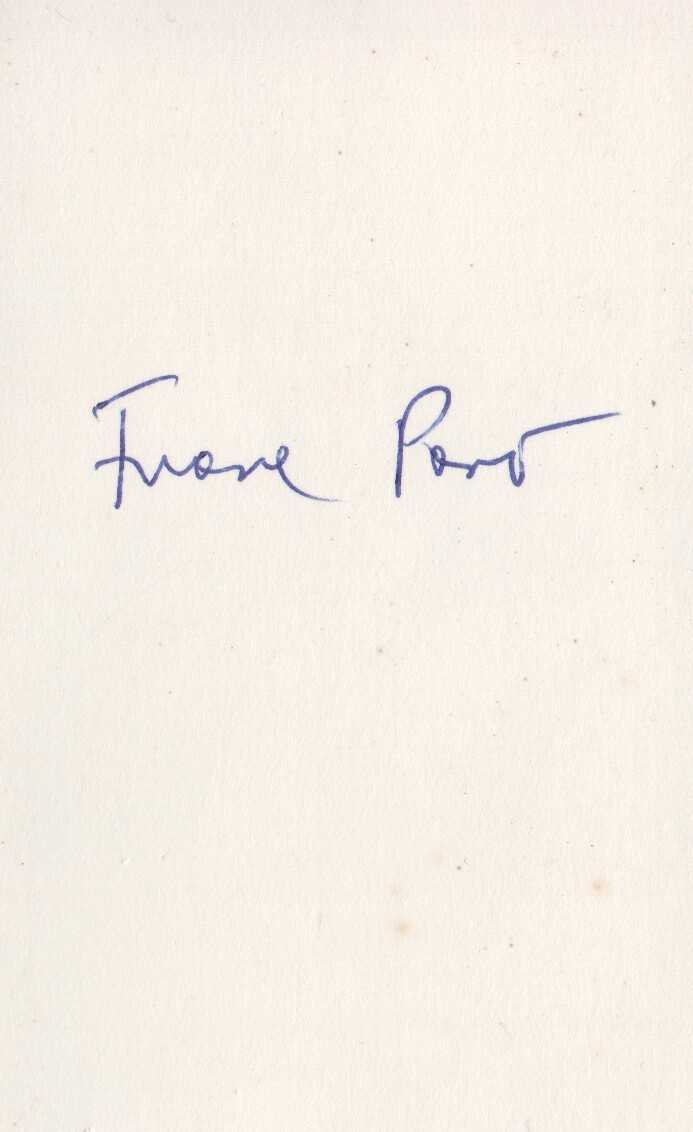 Frane Paro